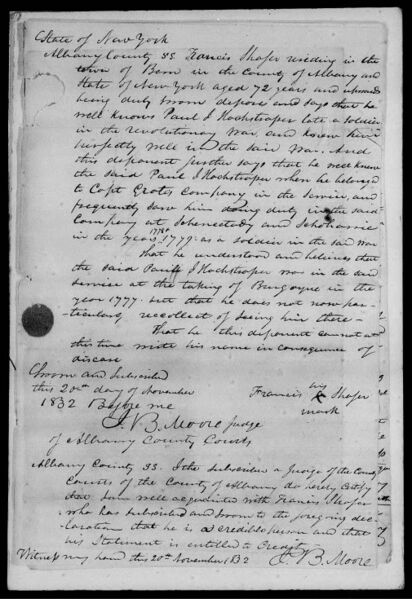 State of New York
Albany County SS. Francis Shafer residing in the
town of Bern in the County of Albany and
State of New York aged 72 years and upwards
being duly sworn deposes and says that he
well knows Paul J Hochstraper late a soldier
in the revolutionary war, and knew him
perfectly well in the said war. And
this deponent further says that he well knew
the said Paul J Hochstraper when he belonged
to Capt Grots Company in the service, and
frequently saw him doing duty in the said
Company at Schenectady and Schoharrie
1778 &
in the years 1779. as a soldier in the said war
That he understood and believes that
the said J Hochstraper was in the said
service at the taking of Burgoyne in the
year 1777. but that he does not now par-
ticularly recollect of seeing him there -
That he this deponent cannot at
this time write his name in consequence of
disease
Sworn and Subscribed
this 20th day of November
1832 Before me
his
Francis X Shafer
mark
J. B. Moore Judge
of Albany County Courts
Albany County SS. I the subscriber a Judge of the County
Courts of the County of Albany do hereby Certify
that I am well acquainted with Francis Shafer
who has subscribed and sworn to the foregoing dec-
laration that he is a credible person and that
his Statement is entitled to Credit
Witness my hand this 20th November 1832
J. B. Moore